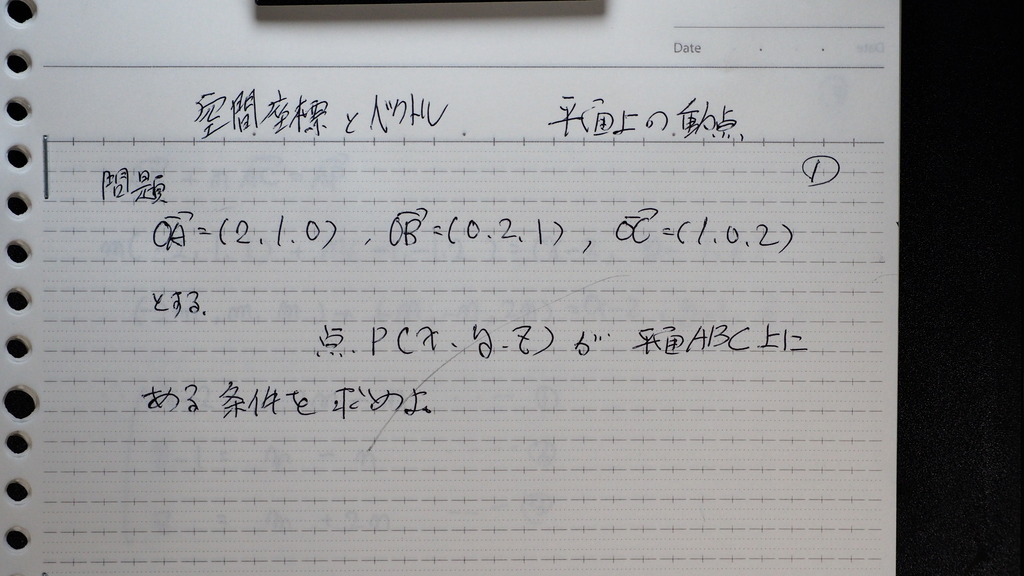 Date
空間座標とベクトル 平面上の動点
①
問題
OA=(2.1.0), OB=(0.2.1), OC=(1.0.2)
とする.
点P(x.y.z)が平面ABC上に
ある条件を求めよ。